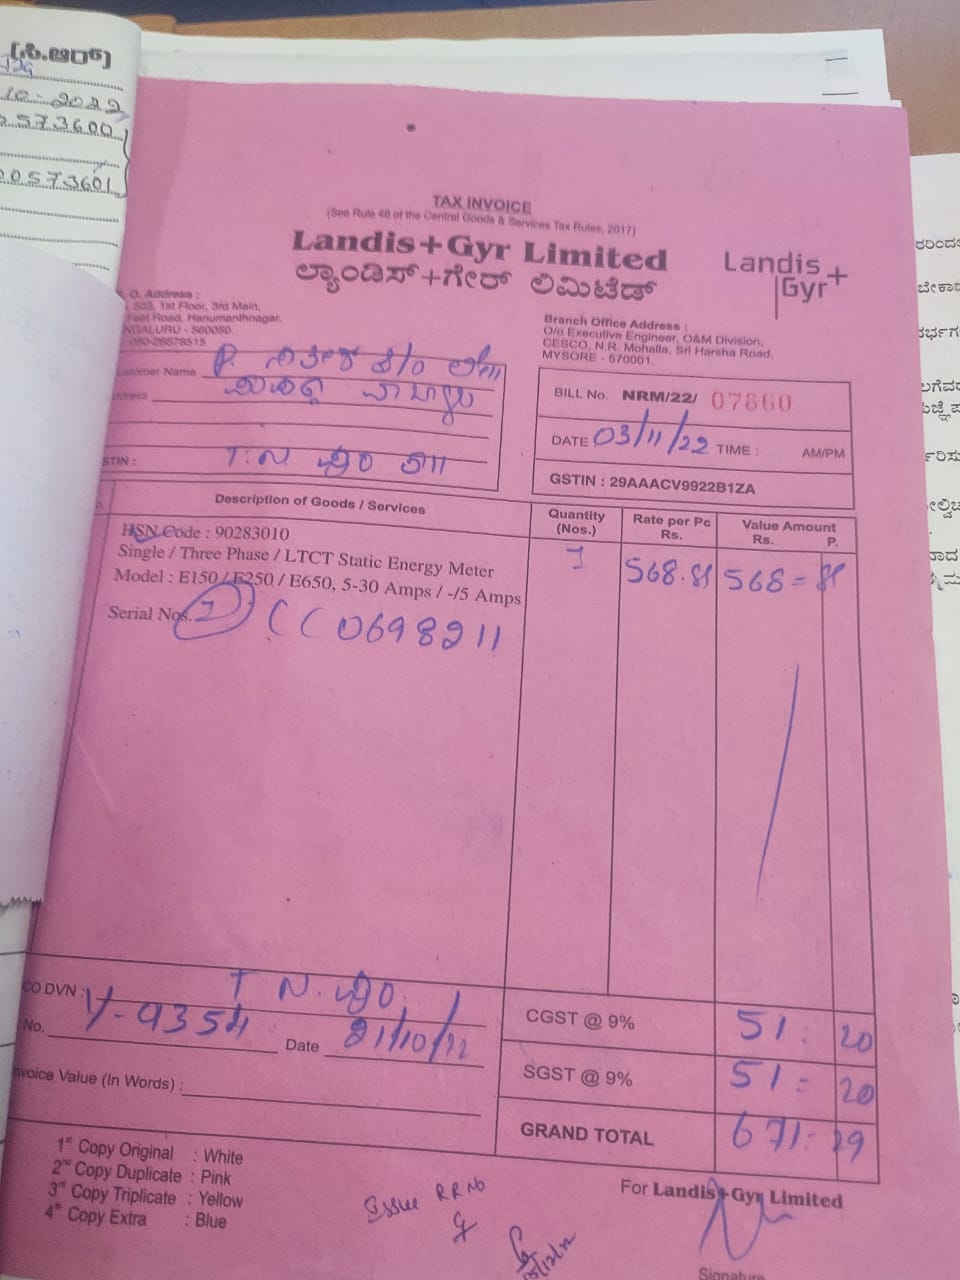 (ಸಿ.ಆರ್)
10-2022
573600
00573601
TAX INVOICE
(See Rule 46 of the Central Goods & Services Tax Rules, 2017)
Landis+Gyr Limited
ಲ್ಯಾಂಡಿಸ್+ಗೇರ್ ಲಿಮಿಟೆಡ್
Landis
Gyr+
O. Address :
503, 1st Floor, 3rd Main,
Feet Road, Hanumanthnagar,
NGALURU - 560050.
080-26678515
Branch Office Address :
O/o Executive Engineer, O&M Division,
CESCO, N.R. Mohalla, Sri Harsha Road,
MYSORE - 570001.
ustomer Name
ddress
STIN :
BILL No. NRM/22/ 07860
DATE 03/11/22 TIME : AM/PM
GSTIN : 29AAACV9922B1ZA
Description of Goods / Services
Quantity (Nos.)
Rate per Pc Rs.
Value Amount Rs. P.
HSN Code : 90283010
Single / Three Phase / LTCT Static Energy Meter
Model : E150 / E250 / E650, 5-30 Amps / -/5 Amps
Serial Nos. 1 CC0698211
1 568.81 568=81
CO DVN :
No. Y-9354 Date 21/10/22
nvoice Value (In Words) :
CGST @ 9% 51: 20
SGST @ 9% 51= 20
GRAND TOTAL 671: 29
1st Copy Original : White
2nd Copy Duplicate : Pink
3rd Copy Triplicate : Yellow
4th Copy Extra : Blue
Issue RR No
For Landis+Gyr Limited
Signature